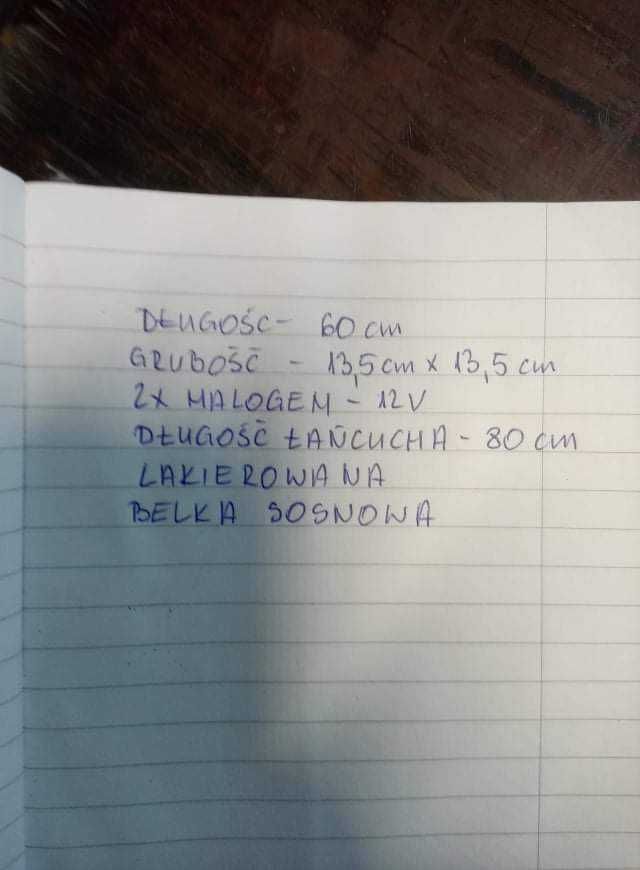 DŁUGOŚĆ - 60 cm
GRUBOŚĆ - 13,5 cm x 13,5 cm
2X HALOGEN - 12V
DŁUGOŚĆ ŁAŃCUCHA - 80 cm
LAKIEROWANA
BELKA SOSNOWA